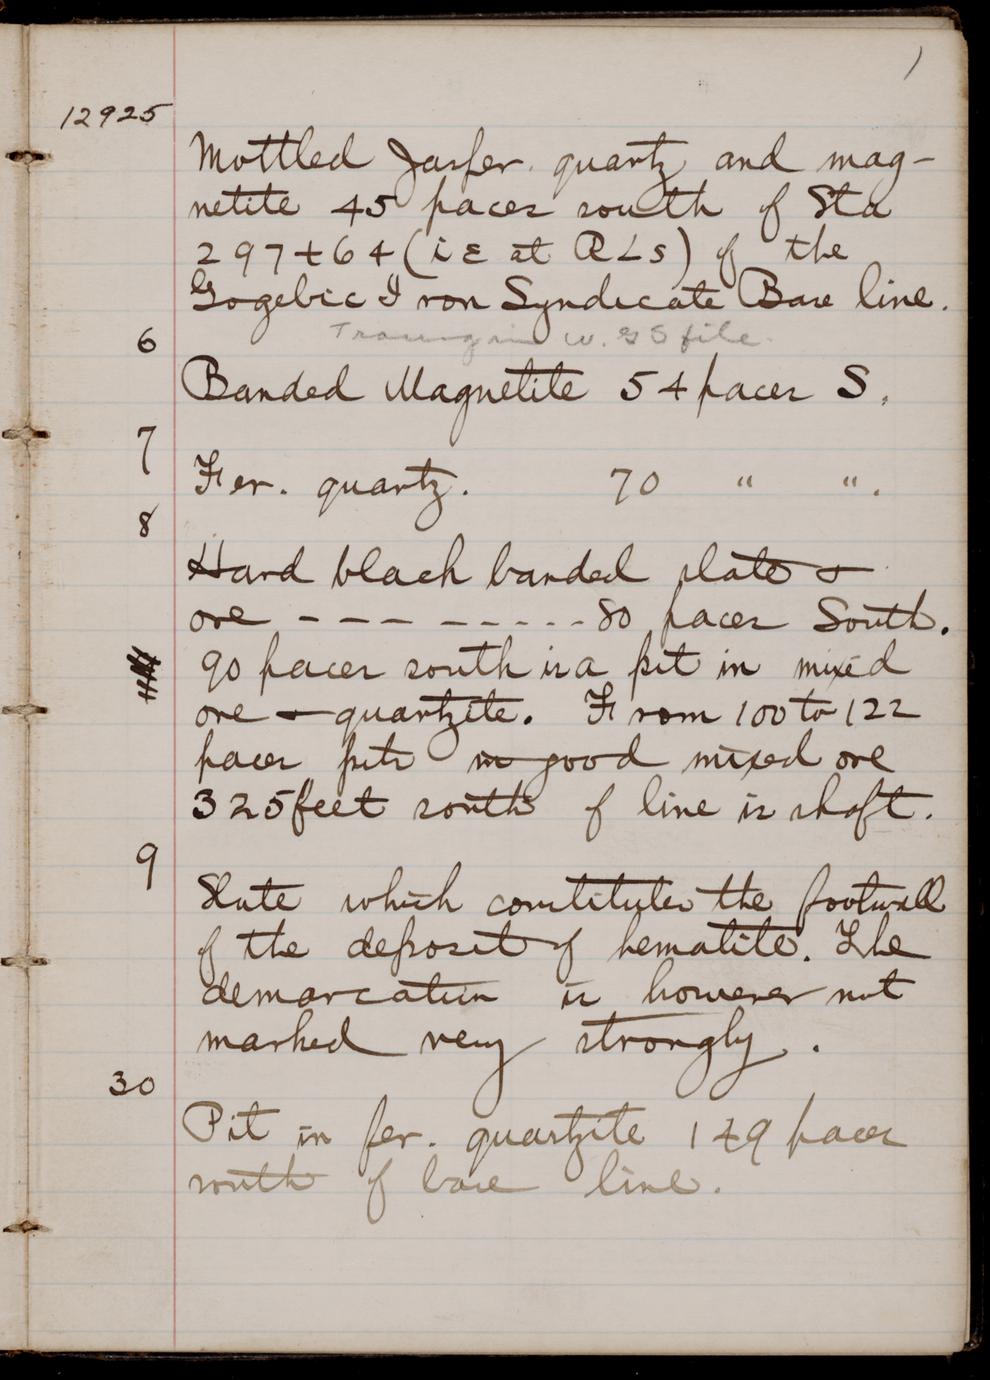 1
12925
Mottled Jasper quartz and mag-
netite 45 paces south of Sta
297+64 (i E at R L s) of the
Gogebic Iron Syndicate Base line.
in W. G S file.
6
Banded Magnetite 54 paces S.
7
Fer. quartz. 70 " ".
8
Hard black banded slate &
ore - - - - - - - - - 80 paces South.
90 paces south is a pit in mixed
ore & quartzite. From 100 to 122
paces pits in good mixed ore
325 feet south of line is shaft.
9
Slate which constitutes the footwall
of the deposit of hematite. The
demarcation is however not
marked very strongly.
30
Pit in fer. quartzite 149 paces
south of base line.